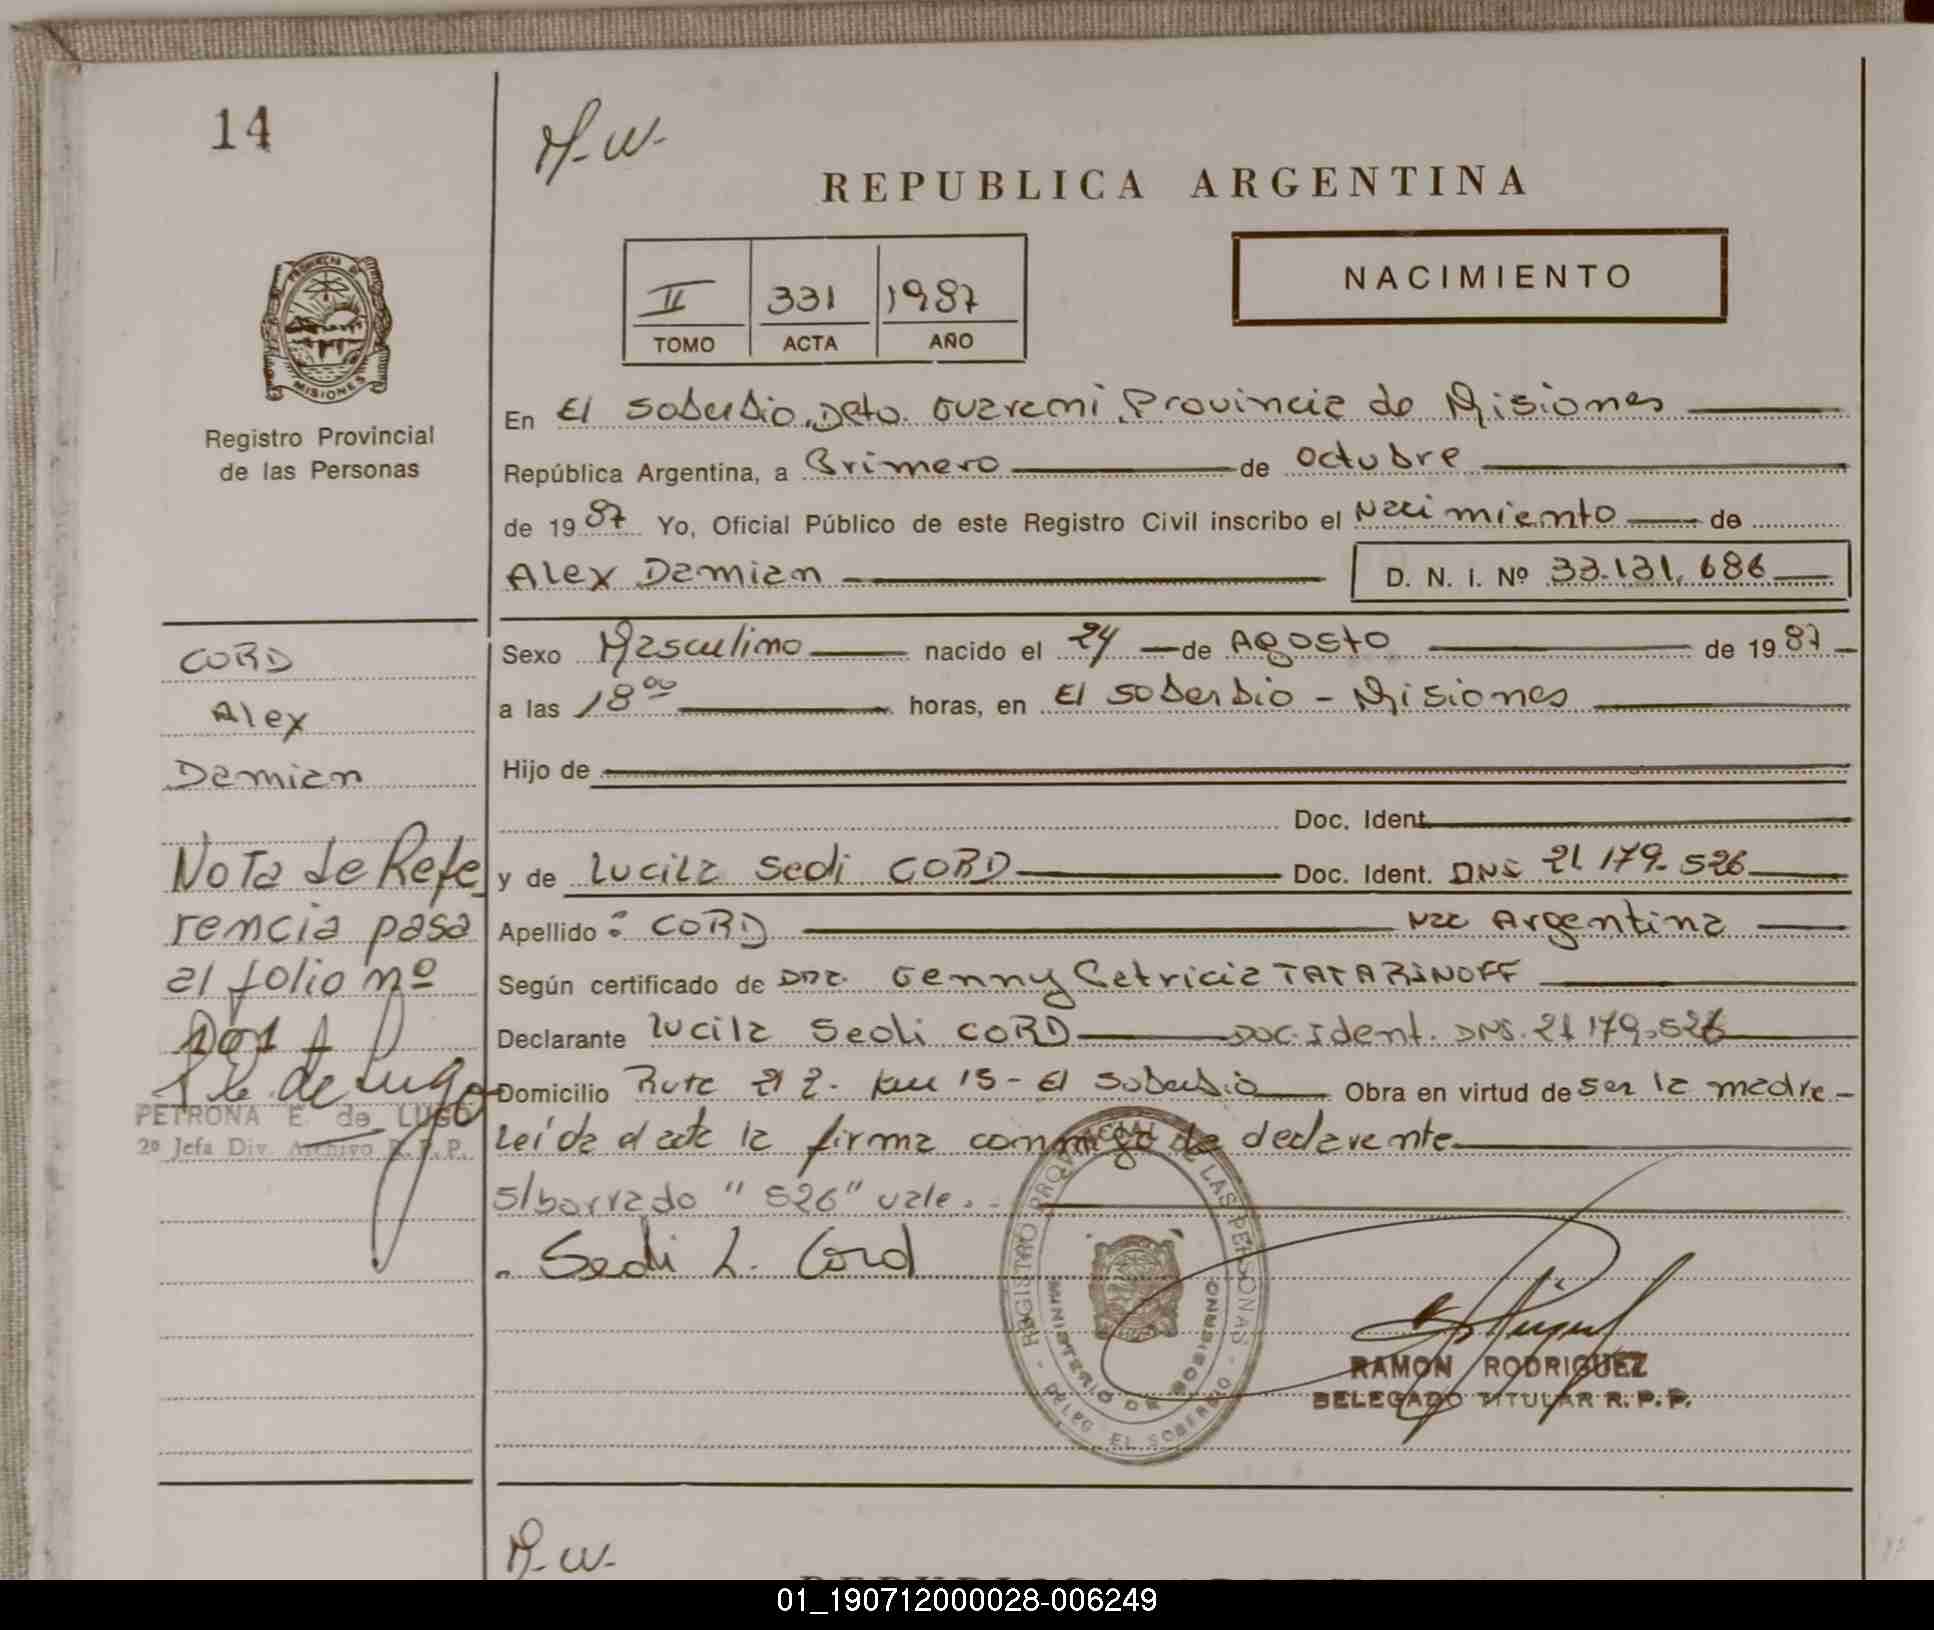 14
M-W-
REPUBLICA ARGENTINA
II 331 1987
TOMO ACTA AÑO
NACIMIENTO
PROVINCIA DE
MISIONES
Registro Provincial
de las Personas
En El Soberbio, Dpto. Guarani, Provincia de Misiones
República Argentina, a Primero de octubre
de 1987 Yo, Oficial Público de este Registro Civil inscribo el Nacimiento de
Alex Damian D. N. I. Nº 33.131.686
Sexo Masculino nacido el 24 de Agosto de 1987
a las 18 00 horas, en El Soberbio - Misiones
Hijo de
Doc. Ident.
y de Lucila Sedi CORD Doc. Ident. DNI 21 179.526
Apellido : CORD Nac Argentina
Según certificado de Dra. Genny Patricia TATARINOFF
Declarante Lucila Sedi CORD Doc. Ident. DNI. 21 179.526
Domicilio Ruta 212 - km 15 - El Soberbio Obra en virtud de ser la madre -
Leída el acta la firma conmigo la declarante
s/borrado "526" vale.
Sedi L. Cord
CORD
Alex
Damian
Nota de Refe
rencia pasa
al folio nº
PETRONA E. de LUGO
2º Jefa Div. Archivo R.P.P.
REGISTRO PROVINCIAL DE LAS PERSONAS
MINISTERIO DE GOBIERNO
DELEG EL SOBERBIO
RAMON RODRIGUEZ
DELEGADO TITULAR R.P.P.
M-W-
01_190712000028-006249